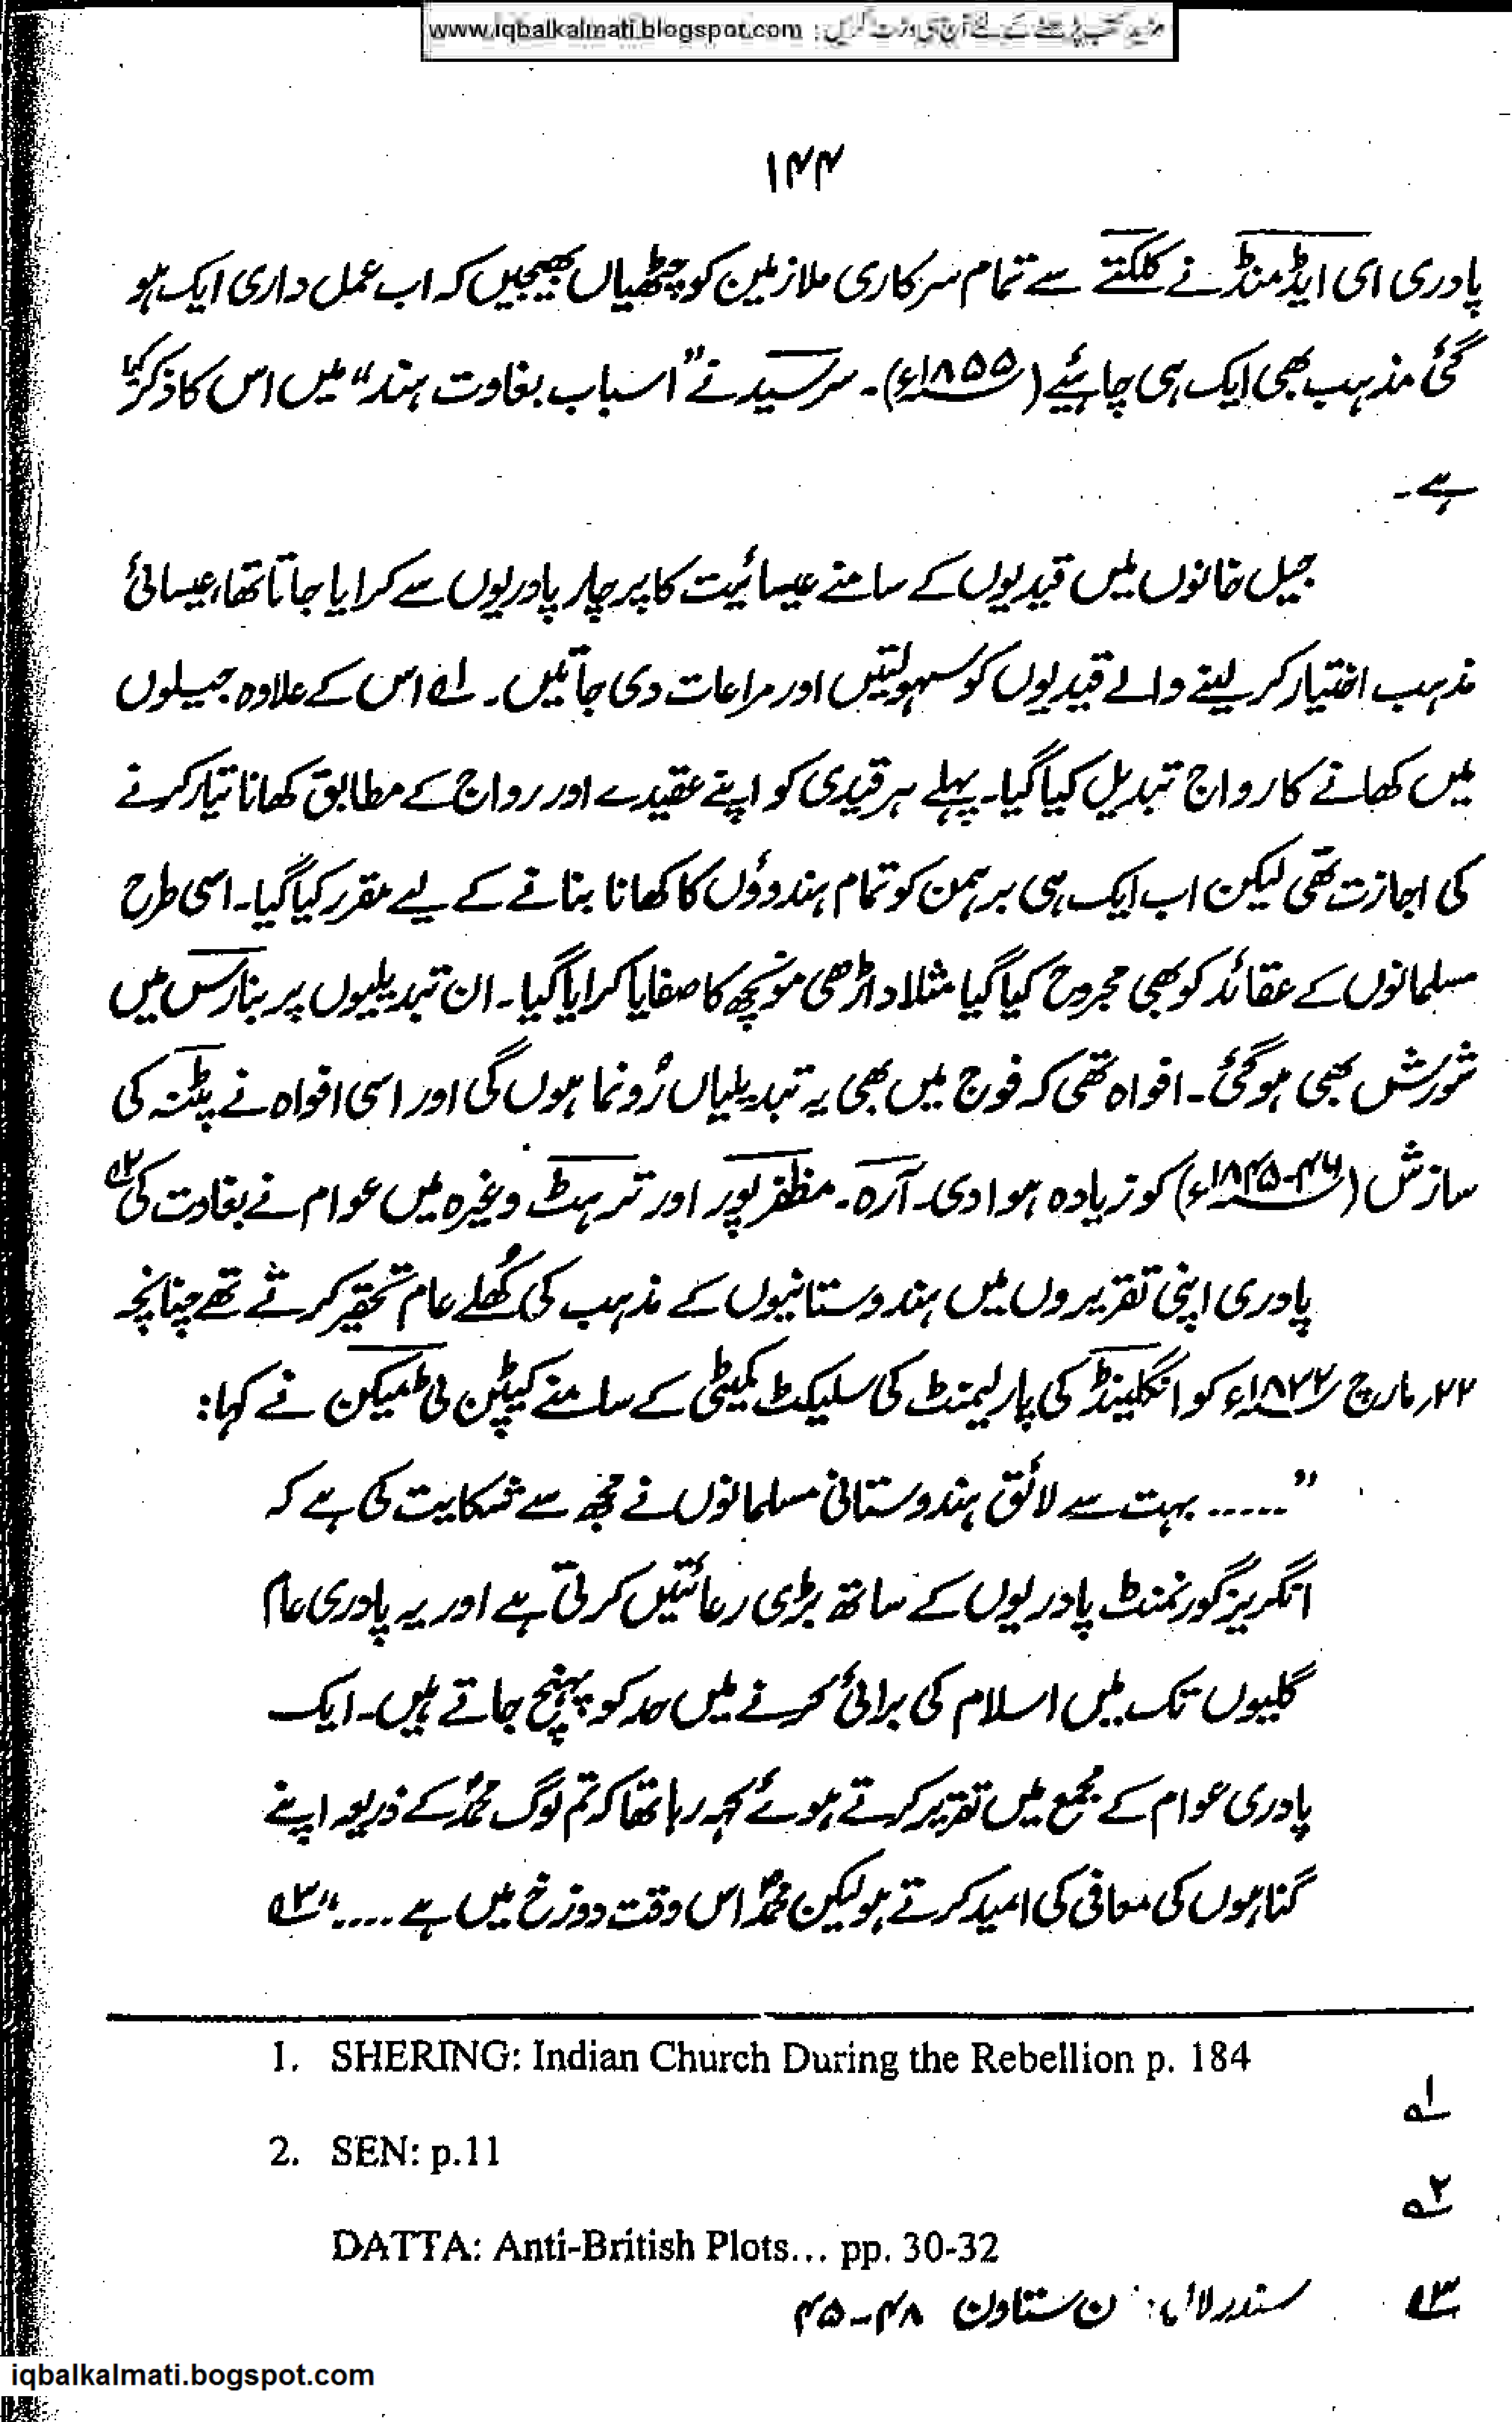 مزید کتب پڑھنے کے لئے آج ہی وزٹ کریں : www.iqbalkalmati.blogspot.com
۱۴۴
پادری ای ایڈمنڈ نے کلکتے سے تمام سرکاری ملازمین کو چٹھیاں بھیجیں کہ اب عمل داری ایک ہو
گئی مذہب بھی ایک ہی چاہئیے (۱۸۵۵ء)۔ سرسید نے ”اسباب بغاوت ہند“ میں اس کا ذکر کیا
ہے۔
جیل خانوں میں قیدیوں کے سامنے عیسائیت کا پرچار پادریوں سے کرایا جاتا تھا، عیسائی
مذہب اختیار کر لینے والے قیدیوں کو سہولتیں اور مراعات دی جاتیں۔ ۱ اس کے علاوہ جیلوں
میں کھانے کا رواج تبدیل کیا گیا۔ پہلے ہر قیدی کو اپنے عقیدے اور رواج کے مطابق کھانا تیار کرنے
کی اجازت تھی لیکن اب ایک ہی برہمن کو تمام ہندوؤں کا کھانا بنانے کے لیے مقرر کیا گیا۔ اسی طرح
مسلمانوں کے عقائد کو بھی مجروح کیا گیا مثلا داڑھی مونچھ کا صفایا کرایا گیا۔ ان تبدیلیوں پر بنارس میں
شورش بھی ہوگئی۔ افواہ تھی کہ فوج میں بھی یہ تبدیلیاں رُونما ہوں گی اور اسی افواہ نے پٹنہ کی
سازش (۴۶-۱۸۴۵ء) کو زیادہ ہوا دی۔ آرہ۔ مظفر پور اور ترہٹ وغیرہ میں عوام نے بغاوت کی ۲
پادری اپنی تقریروں میں ہندوستانیوں کے مذہب کی کُھلے عام تحقیر کرتے تھے چنانچہ
۲۲؍ مارچ ۱۸۳۲ء کو انگلینڈ کی پارلیمنٹ کی سلیکٹ کمیٹی کے سامنے کیپٹن ٹی میکن نے کہا:
”..... بہت سے لائق ہندوستانی مسلمانوں نے مجھ سے شکایت کی ہے کہ
انگریز گورنمنٹ پادریوں کے ساتھ بڑی رعائتیں کرتی ہے اور یہ پادری عام
گلیوں تک میں اسلام کی برائی کرنے میں حد کو پہنچ جاتے ہیں۔ ایک
پادری عوام کے مجمع میں تقریر کرتے ہوئے کہہ رہا تھا کہ تم لوگ محمدؐ کے ذریعہ اپنے
گناہوں کی معافی کی امید کرتے ہو لیکن محمدؐ اس وقت دوزخ میں ہے ....“ ۳
1. SHERING: Indian Church During the Rebellion p. 184
۱
2. SEN: p.11
۲
DATTA: Anti-British Plots... pp. 30-32
۳ سندر لال: ن ستاون ۴۸-۴۵
iqbalkalmati.bogspot.com